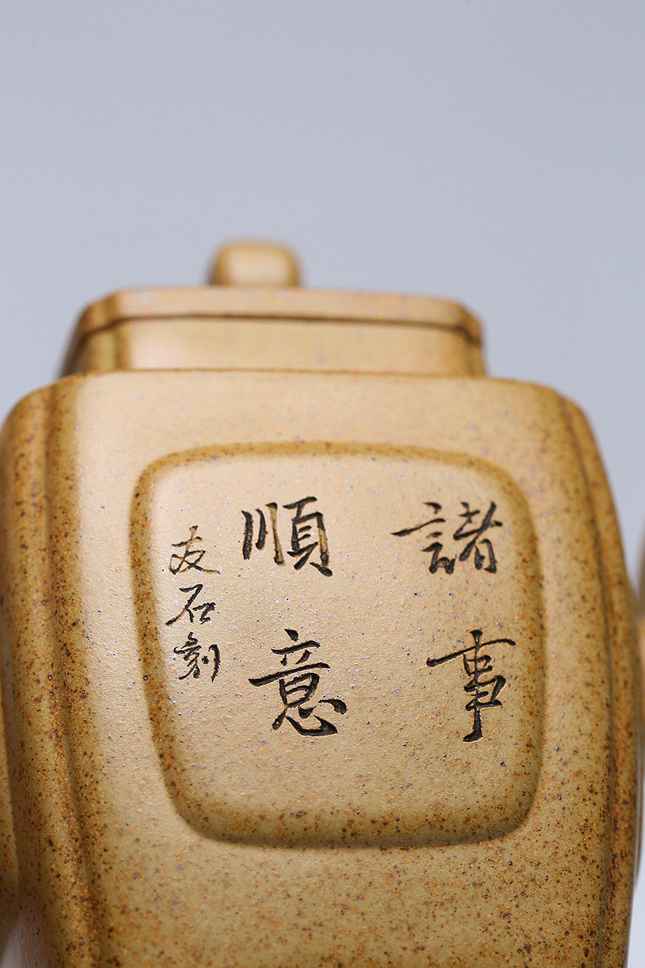 諸事
順意
友石刻